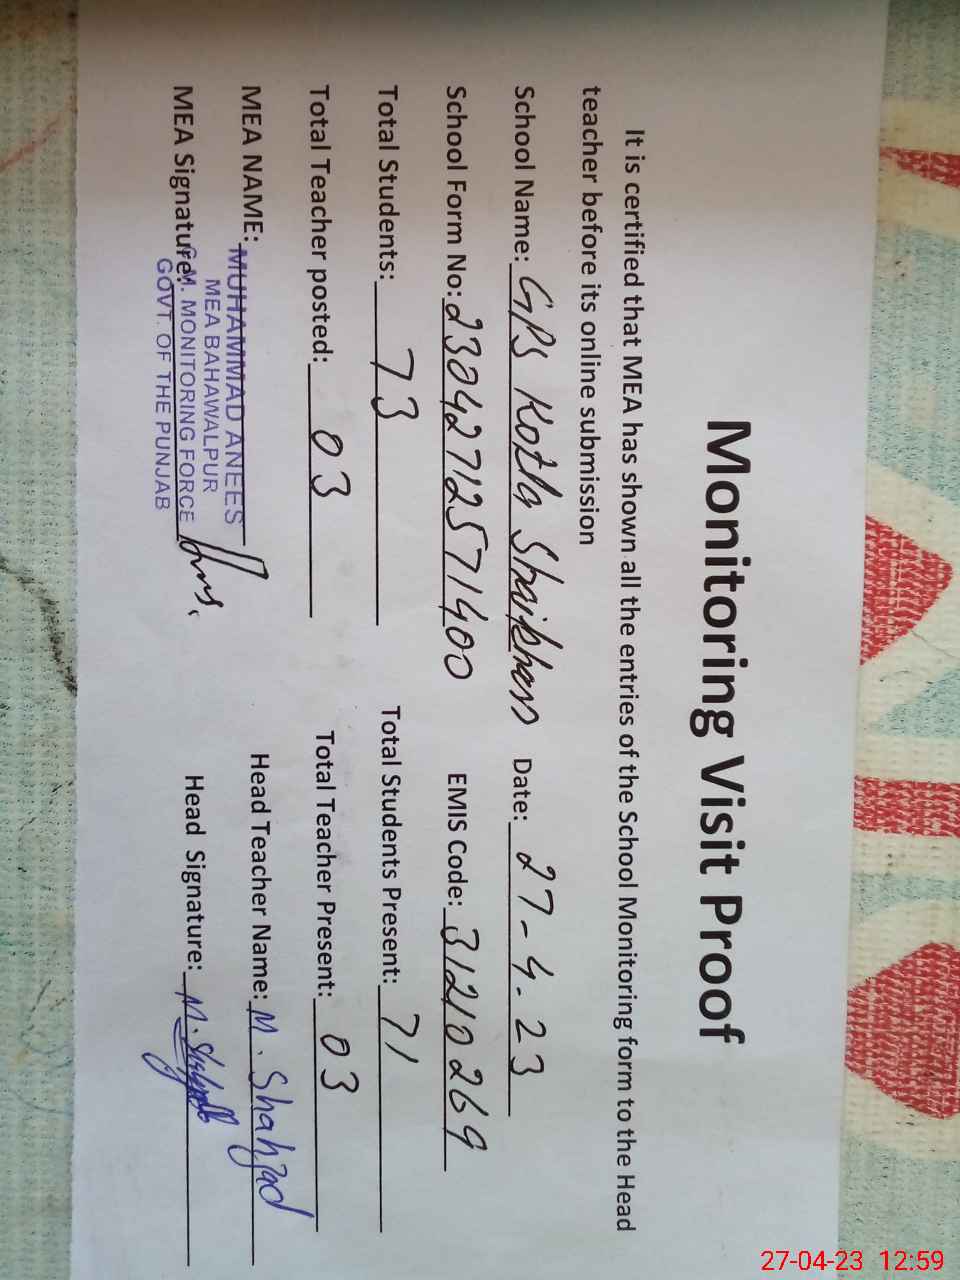 Monitoring Visit Proof
It is certified that MEA has shown all the entries of the School Monitoring form to the Head
teacher before its online submission
School Name: GPS Kotla Shaikhan Date: 27-4-23
School Form No: 23042712571400 EMIS Code: 31210269
Total Students: 73 Total Students Present: 71
Total Teacher posted: 03 Total Teacher Present: 03
MEA NAME: MUHAMMAD ANEES Head Teacher Name: M. Shahzad
MEA BAHAWALPUR
MEA Signature: C.M. MONITORING FORCE Head Signature:
GOVT. OF THE PUNJAB
27-04-23 12:59